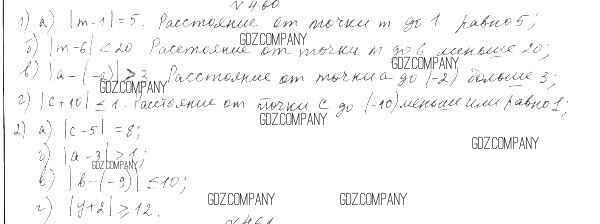 №460
1) а) |m-1|=5. Расстояние от точки m до 1 равно 5;
б) |m-6|<20 Расстояние от точки m до 6 меньше 20;
GDZ.COMPANY
GDZ.COMPANY
в) |a-(-2)|>3 Расстояние от точки a до (-2) больше 3;
GDZ.COMPANY
г) |c+10|≤1. Расстояние от точки c до (-10) меньше или равно 1;
GDZ.COMPANY
2) а) |c-5|=8;
GDZ.COMPANY
б) |a-3|>1;
GDZ.COMPANY
в) |b-(-9)|≤10;
GDZ.COMPANY GDZ.COMPANY
г) |y+2|≥12.
№461